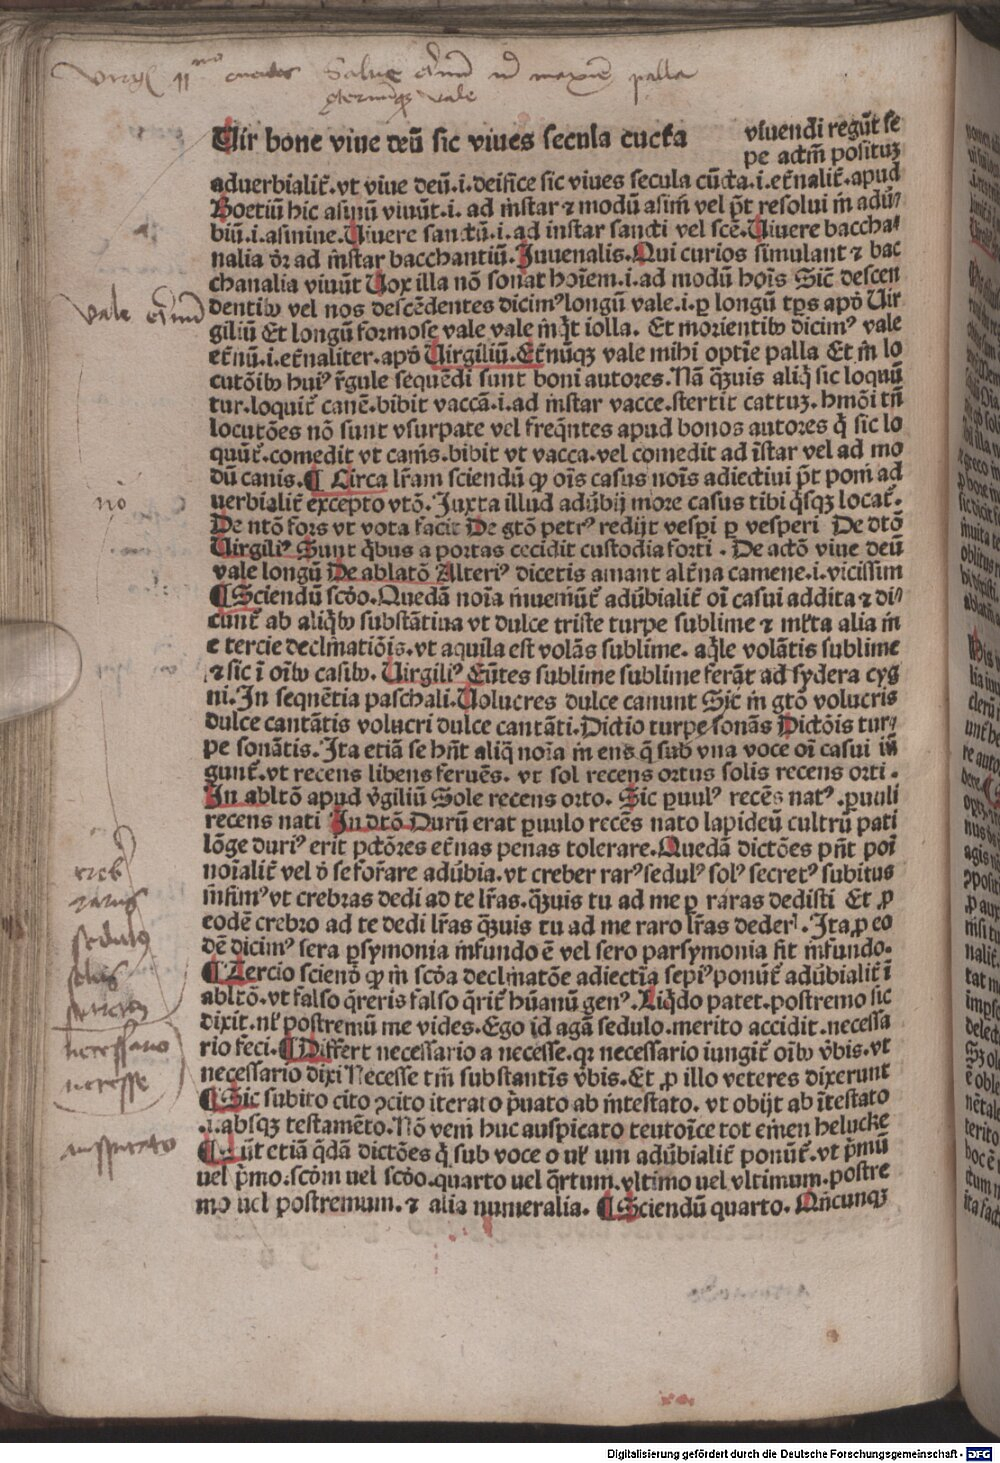 Virgil 11mo eneidos Salue eternū mihi maxime palla
eternumqꝫ vale
Uir bone viue deū sic viues secula cūcta
viuendi regūt se
pe actm̄ positūꝫ
aduerbialiť.vt viue deū.i.deifice sic viues secula cūcta.i.eťnaliť.apud
Boetiū hic asinū viuūt.i. ad instar ⁊ modū asini vel p̄t resolui in adũ⸗
biū.i.asinine.Uiuere sanctū.i.ad instar sancti vel scē.Uiuere baccha⸗
nalia ð ad instar bacchantiū.Juuenalis.Qui curios simulant ⁊ bac
chanalia viuūt Uox illa nō sonat hoīem.i.ad modū hoīs Sic̄ descen
dentibꝰ vel nos descēdentes dicimꝰ longū vale.i.ꝑ longū tꝑs apð Uir
giliū Et longū formose vale vale inq̇t iolla. Et morientibꝰ dicimꝰ vale
eťnū.i.eťnaliter.apð Uirgiliū.Eťnūqꝫ vale mihi optīe palla Et in lo
cutōibꝰ huiꝰ r̄gule sequēdi sunt boni autores.Nā q̄uis aliq̇ sic loquū
tur.loquiť canē.bibit vaccā.i.ad instar vacce.stertit cattuꝫ.hmōi tn̄
locutōes nō sunt vsurpate vel freq̄ntes apud bonos autores q̇ sic lo
quūť.comedit vt canis.bibit vt vacca.vel comedit ad īstar vel ad mo
dū canis.¶ Circa lr̄am sciendū ꝙ oīs casus noīs adiectiui p̄t poni ad
uerbialiť excepto vtō.Juxta illud adũbij more casus tibi q̇sqꝫ locať.
De ntō fors vt vota facit De gtō petrꝰ redijt vesꝑi ꝑ vesperi De dtō
Uirgiliꝰ Sunt q̇bus a portas cecidit custodia forti. De actō viue deū
vale longū De ablatō Alteriꝰ dicetis amant alťna camene.i.vicissim
¶Sciendū scðo.Quedā noīa inueniūť adũbialiť oī casui addita ⁊ di⸗
cunť ab aliq̇bꝰ substātiua vt dulce triste turpe sublime ⁊ mlta alia in
e tercie declinatiōis.vt aquila est volās sublime. aq̇le volātis sublime
⁊ sic ī oībꝰ casibꝰ. Uirgiliꝰ Eūtes sublime sublime ferāt ad sydera cyg
ni.In sequētia paschali.Uolucres dulce canunt Sic in gtō volucris
dulce cantātis volucri dulce cantāti.Dictio turpe sonās Dictōis tur⸗
pe sonātis.Ita etiā se hn̄t aliq̄ noīa in ens q̄ sub vna voce oī casui iū
gunť.vt recens libens feruēs. vt sol recens ortus solis recens orti.
In abltō apud v̄giliū Sole recens orto. Sic puulꝰ recēs natꝰ.puuli
recens nati In dtō Durū erat puulo recēs nato lapideū cultrū pati
lōge duriꝰ erit pctōres eťnas penas tolerare.Quedā dictōes pn̄t poī
noīaliť vel ð se forare adũbia.vt creber rarꝰ sedulꝰ solꝰ secretꝰ subitus
infimꝰ vt crebras dedi ad te lr̄as.q̄uis tu ad me ꝑ raras dedisti Et ꝓ
eodē crebro ad te dedi lr̄as q̄uis tu ad me raro lr̄as deder̄.Ita ꝓ eo
dē dicimꝰ sera ꝑsymonia in fundo ē vel sero parsymonia fit in fundo.
¶Tercio sciendū ꝙ in scða declinatōe adiectīa sepiꝰ ponūť adũbialiť ī
abltō.vt falso q̄reris falso q̄riť hūanū genꝰ.Liq̇do patet.postremo sic
dixit.nl' postremū me vides.Ego id agā sedulo.merito accidit.necessa
rio feci.¶Differt necessario a necesse.qꝛ necessario iungiť oībꝰ v̄bis.vt
necessario dixi Necesse tm̄ substantīs v̄bis.Et ꝓ illo veteres dixerunt
¶Sic subito cito ɔcito iterato p̄uato ab intestato. vt obijt ab ītestato
.i.absqꝫ testamēto.Nō veni huc auspicato teutoīce tot emen helucke
¶Sūt etiā q̄dā dictōes q̄ sub voce o ul' um adũbialiť ponūť.vt p̄mū
uel p̄mo.scðm uel scðo.quarto uel q̄rtum.vltimo uel vltimum.postre
mo uel postremum.⁊ alia numeralia. ¶Sciendū quarto.Qn̄cunqꝫ
vale eternū
no
creb
rarus
sedulꝰ
solus
secretus
necessario
necesse
auspicato
Digitalisierung gefördert durch die Deutsche Forschungsgemeinschaft - DFG